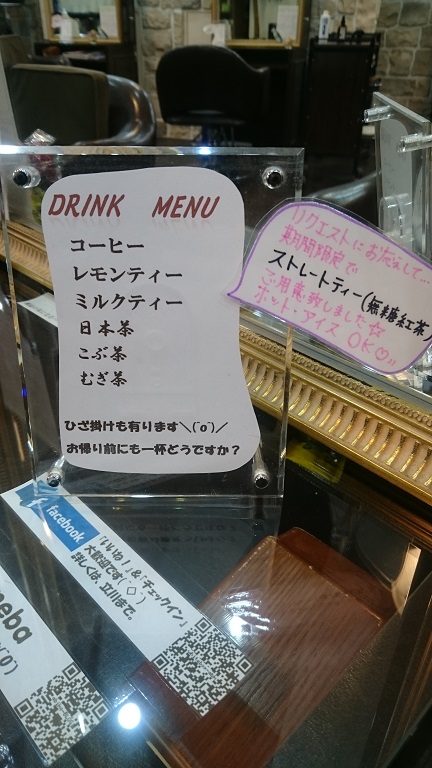 DRINK MENU
コーヒー
レモンティー
ミルクティー
日本茶
こぶ茶
むぎ茶
ひざ掛けも有ります＼(¨o¨)／
お帰り前にも一杯どうですか？
リクエストにお応えして…
期間限定で
ストレートティー(無糖紅茶)
ご用意致しました☆
ホット・アイス OK
facebook
「いいね！」&「チェックイン」
大歓迎です(¨◇¨)ゞ
詳しくは、立川まで。